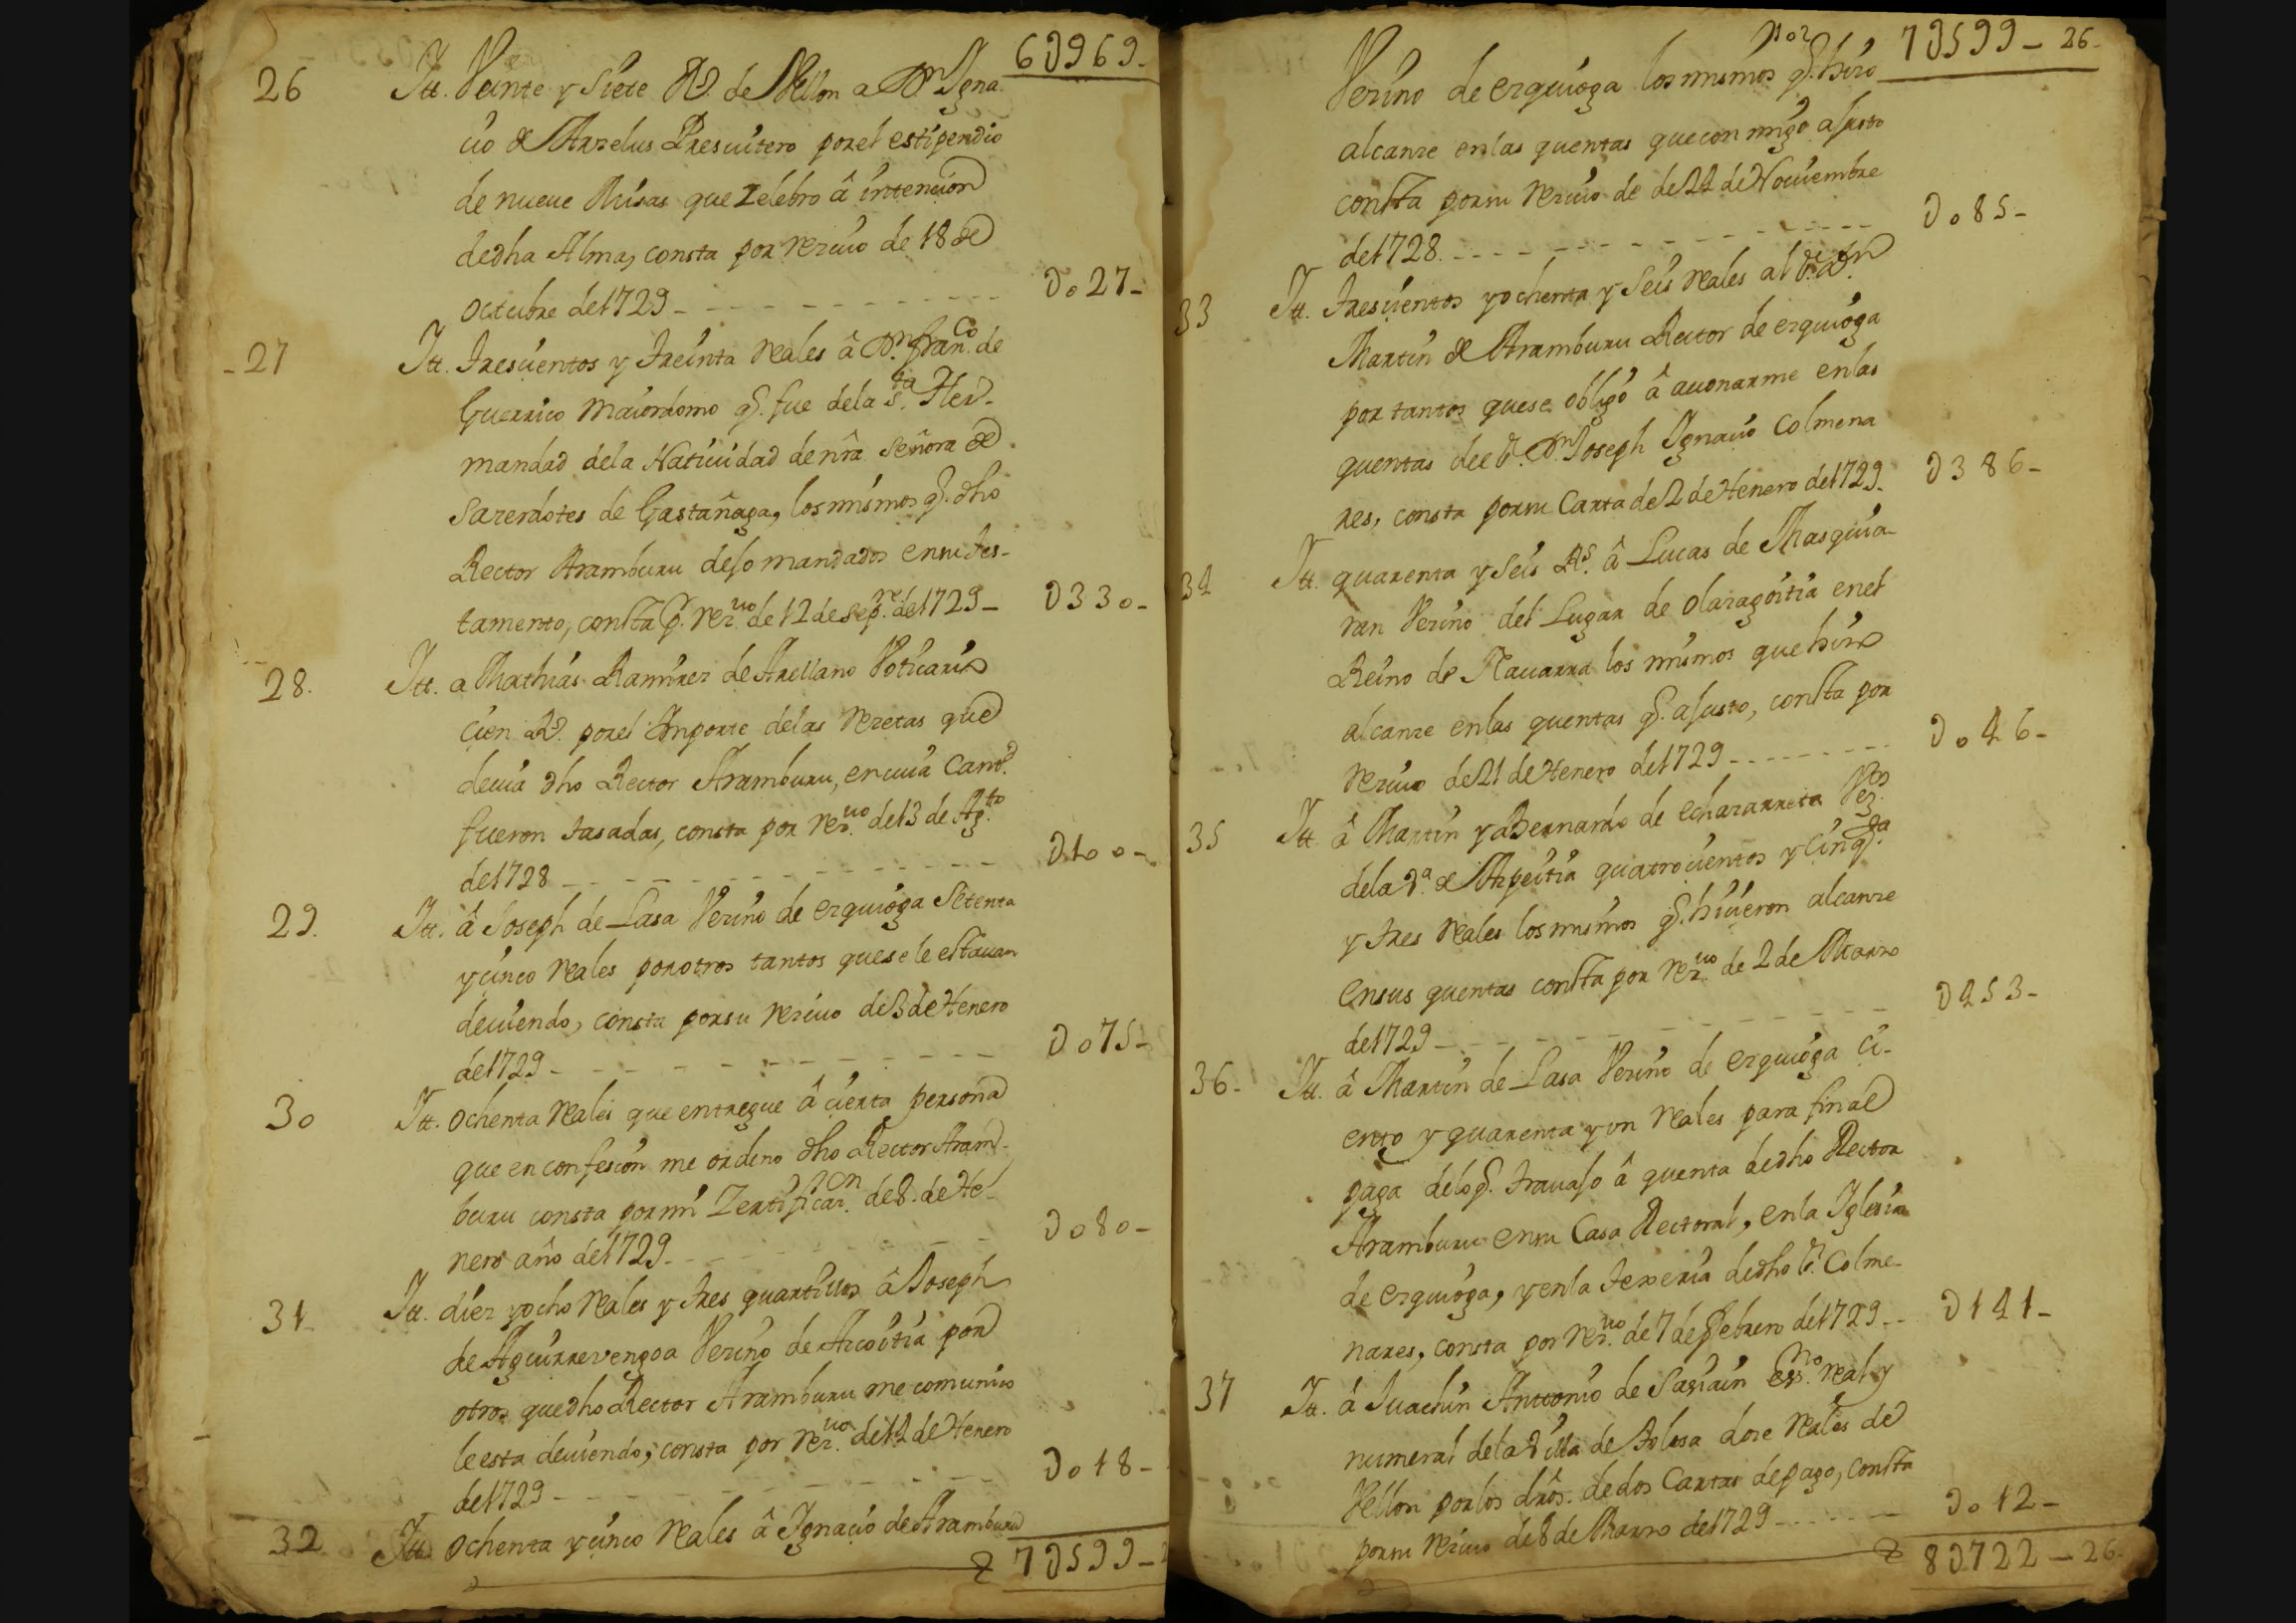 6U969-
26 Itt. Veinte y siete Rs. de Vellon a Dn. Igna-
cio de Arzelus Presvitero por el estipendio
de nueue Misas que Zelebro â intencion
de dha Alma, consta por rezivo de 18 de
octubre de 1729 - - - - U027-
27 Itt. Trescientos y treinta reales â Dn. Franco. de
Guerrico Maiordomo q. fue de la sta. Her-
mandad de la Natiuidad de nrâ señora de
Sazerdotes de Gastañaga, los mismos q. dho
Rector Aramburu deJo mandados en su tes-
tamento, consta p. rezuo. de 12 de sepre. de 1729 - U330-
28. Itt. a Mathias Ramirez de Arellano Voticario
cien Rs. por el Importe de las rezetas que
deuia dho Rector Aramburu, en cuia cantd.
fueron tasadas, consta por rezuo. de 13 de Agto.
de 1728 - - - - U100-
29. Itt. â Joseph de Lasa Vezino de ezquioga setenta
y cinco reales por otros tantos que se le estauan
deuiendo, consta por su reziuo de 3 de Henero
de 1729 - - - - U075-
30 Itt. ochenta reales que entregue â cierta persona
que en confesion me ordeno dho Rector Aram-
buru consta por mi Zertificazon. de 8. de He-
nero año de 1729 - - - - U080-
31- Itt. diez y ocho reales y tres quartillos â Joseph
de Aguirrevengoa Vezino de Azcoitia por
otros que dho Rector Aramburu me comunico
le esta deuiendo, consta por rezuo. de 12 de Henero
de 1729 - - - - U018-
32 Itt. ochenta y cinco reales â Ignacio de Aramburu
7U599-2
Por 7U599-26-
Vezino de ezquioga los mismos q. hizo
alcanze en las quentas que con migo aJusto
consta por su reziuo de de 22 de Nouiembre
de 1728. - - - - U085-
33 Itt. Trescientos y ochenta y seis reales al Sr. Dn.
Martin de Aramburu Rector de ezquioga
por tantos que se obligo â auonarme en las
quentas de el Sr. Dn. Joseph Ignacio Colmena
res, consta por su Carta de 2 de Henero de 1729- U386-
34 Itt. quarenta y seis Rs. â Lucas de Masquia-
ran Vezino del Lugar de olazagoitia en el
Reino de Nauarra los mismos que hizo
alcanze en las quentas q. aJusto, consta por
reziuo de 21 de Henero de 1729 - - - - U046-
35 Itt. â Martin y a Bernardo de echazarreta Vezos.
de la Va. de Azpeitia quatrocientos y cinqta.
y tres reales los mismos q. hizieron alcanze
en sus quentas consta por rezuo. de 2 de Marzo
de 1729 - - - - U453-
36- Itt. â Martin de Lasa Vezino de ezquioga ci-
ento y quarenta y un reales para final
paga de lo q. trauaJo â quenta de dho Rector
Aramburu en su Casa Rectoral, en la Iglesia
de ezquioga, y en la texeria de dho Sr. Colme-
nares, consta por rezuo. de 7 de Febrero de 1729 - - U141-
37 Itt. â Juachin Antonio de Sasiain essno. real y
numeral de la Villa de tolosa doze reales de
Vellon por los drôs. de dos Cartas de pago, consta
por su reziuo de 8 de Marzo de 1729 - - - - U012-
8U722-26-